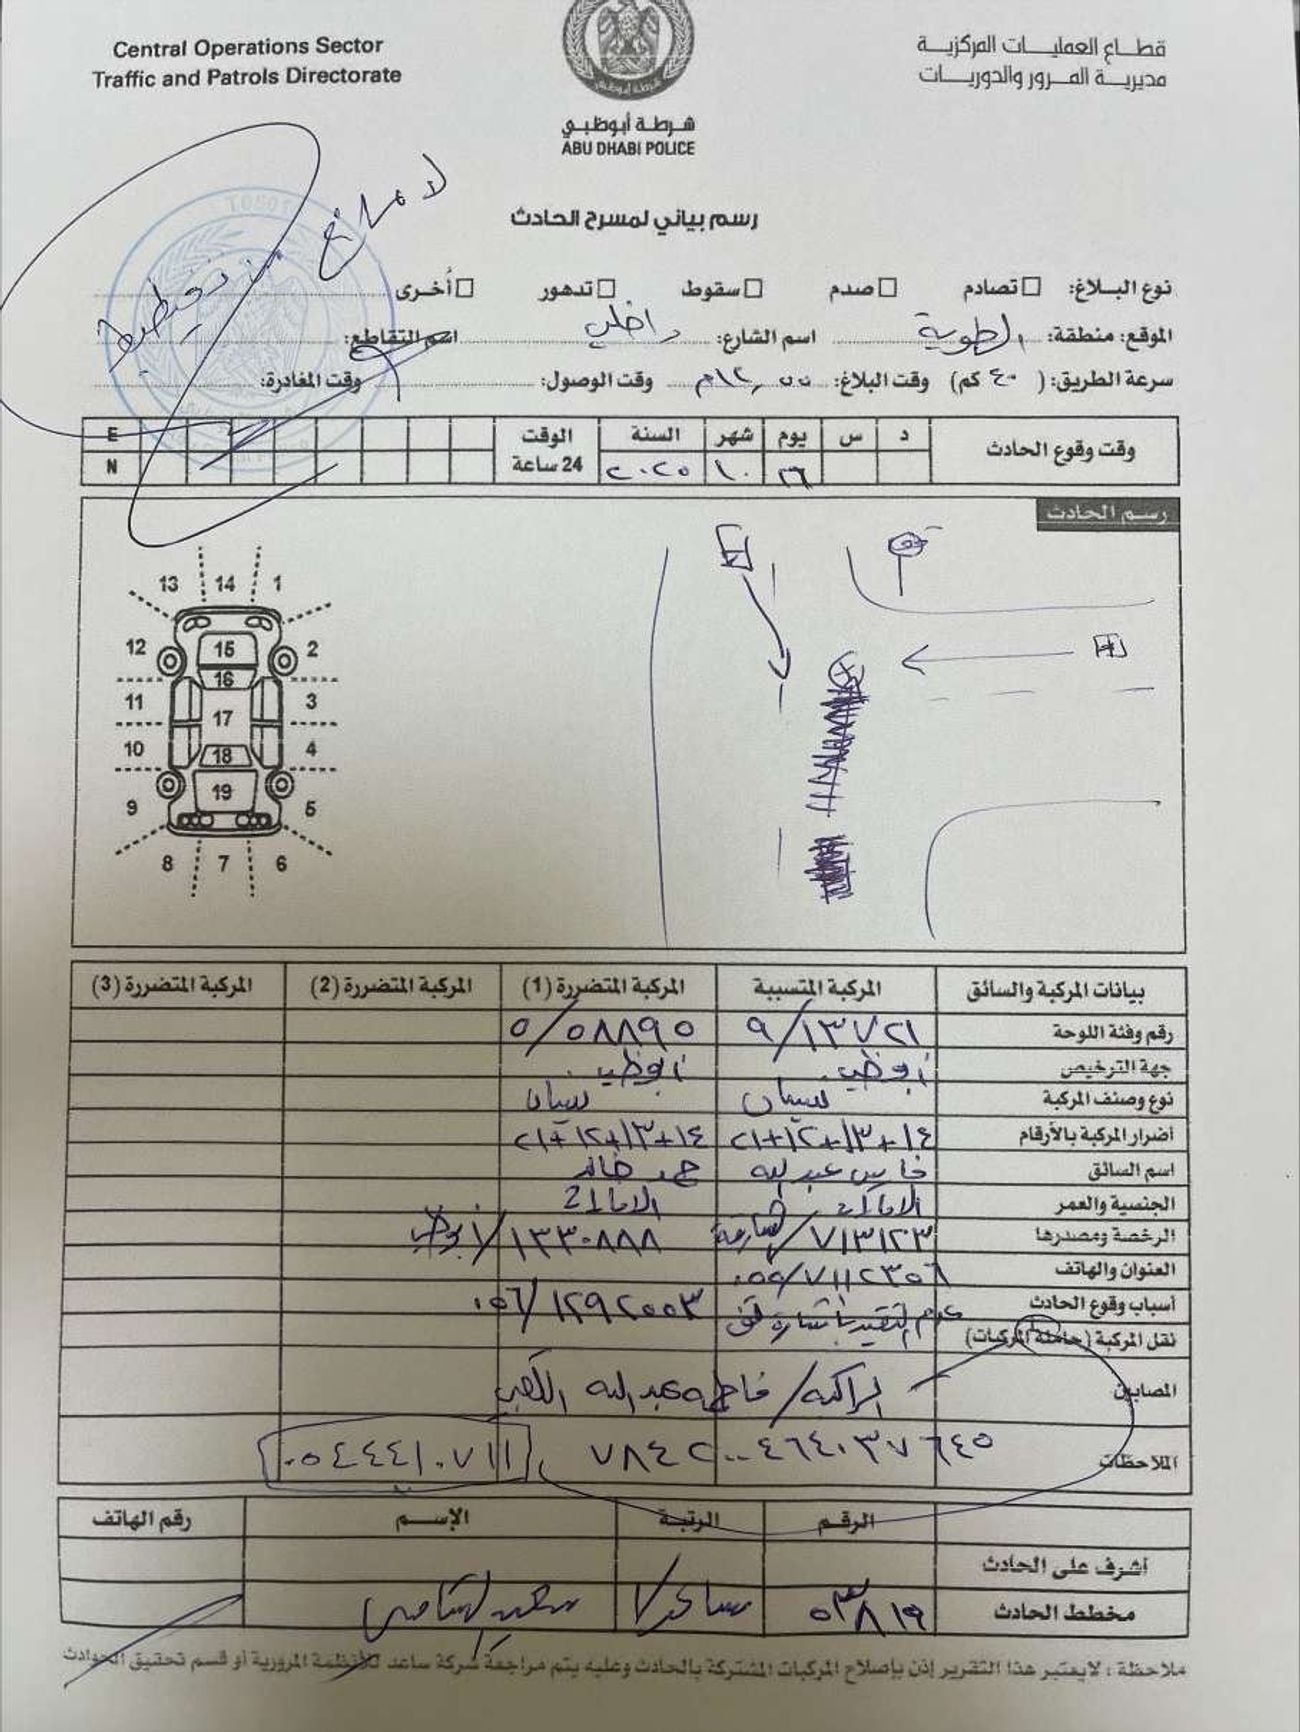 Central Operations Sector
Traffic and Patrols Directorate
قطاع العمليات المركزية
مديرية المرور والدوريات
شرطة أبوظبي
ABU DHABI POLICE
لا مانع من تخطيط
رسم بياني لمسرح الحادث
نوع البلاغ: تصادم صدم سقوط تدهور أخرى
الموقع: منطقة: الطوية اسم الشارع: داخلي اسم التقاطع:
سرعة الطريق: (٤٠ كم) وقت البلاغ: م وقت الوصول: وقت المغادرة:
وقت وقوع الحادث د س يوم شهر السنة الوقت 24 ساعة E
٢٦ ١٠ ٢٠٢٥ N
رسم الحادث
قف
13 14 1
12 15 2
16
11 17 3
10 18 4
9 19 5
8 7 6
بيانات المركبة والسائق المركبة المتسببة المركبة المتضررة (1) المركبة المتضررة (2) المركبة المتضررة (3)
رقم وفئة اللوحة ٩/١٣٧٢١ ٥/٥٨٨٩٥
جهة الترخيص أبوظبي أبوظبي
نوع وصنف المركبة نيسان نيسان
أضرار المركبة بالأرقام ١٤+١٣+١٢+٢١ ١٤+١٣+١٢+٢١
اسم السائق فارس عبدالله حمد خالد
الجنسية والعمر الامارات الامارات
الرخصة ومصدرها ٧١٣١٢٣/الشارقة ١٣٣٠٨٨٨/أبوظبي
العنوان والهاتف ٠٥٥/٧١١٢٣٥٦
أسباب وقوع الحادث عدم التقيد باشارة قف ٠٥٦/١٢٩٢٥٥٣
نقل المركبة (حاملة المركبات)
المصابين الراكبة/ فاطمه عبدالله الكعبي
الملاحظات ٧٨٤٢٠٠٤٦٤٠٣٧٦٤٥ ٠٥٤٤٤١٠٧١١
الرقم الرتبة الإسم رقم الهاتف
أشرف على الحادث
مخطط الحادث ٥٣٨١٩ مساعد/١ سعيد
ملاحظة : لايعتبر هذا التقرير إذن بإصلاح المركبات المشتركة بالحادث وعليه يتم مراجعة شركة ساعد للأنظمة المرورية أو قسم تحقيق الحوادث